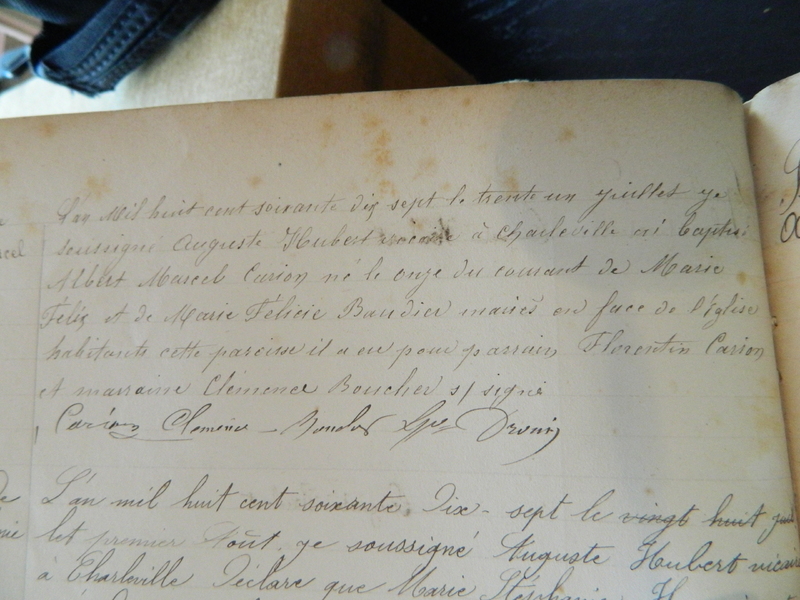 L'an Mil huit cent soixante dix sept le trente un juillet je
soussigné Auguste Hubert vicaire à Charleville ai baptisé
Albert Marcel Carion né le onze du courant de Marie
Félix et de Marie Félicie Baudier mariés en face de l'église
habitants cette paroisse il a eu pour parrain Florentin Carion
et marraine Clémence Boucher s/ signé
Carion Clemence Boucher
L'an mil huit cent soixante Dix-sept le vingt huit juil
let premier Août, je soussigné Auguste Hubert vicaire
à Charleville Déclare que Marie Stéphanie H